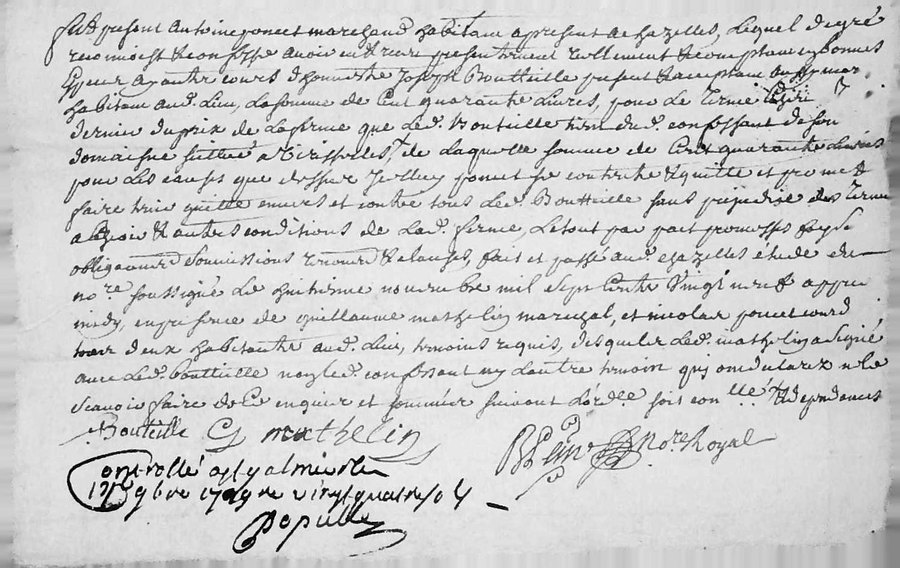 fut present Antoine poncet marchand habitant a present a chazelles, Lequel de gré
reconnoist & confesse avoir eu & receu presentement reellement & comptant en bonnes
Especes ayant cours d'honneste Joseph Boutteille present & acceptant
habitant aud. Lieu, La somme de Cent quarante Livres, pour Le terme
dernier du prix de La ferme que Led. Boutteille tient dud. confessant de son
domaisne scittué a de Laquelle somme de Cent quarante Livres
pour Les causes que dessus Led. poncet se contente & quitte et promet
faire tenir quitte envers et contre tous Led. Boutteille sans prejudice des termes
a Eschoir & autres conditions de Lad. ferme, Le tout par pact promesses foy &c
obligaōns soumissions renonōns & clauses, fait et passé aud. chazelles étude du
no.re soussigné Le huitieme novembre mil Sept Cents Vingt neuf appres
midy, en presence de Guillaume mathelin marechal, et nicolas poncet
tous deux habitants aud. Lieu, temoins requis, desquels Led. mathelin a Signé
avec Led. boutteille non Led. confessant ny L'autre temoin qui ont declarez ne le
Scavoir faire de Ce enquis et sommés suivant L'ord.ce soit con.llé & dependances
Boutteille G mathelin
No.re Royal
Controllé a St galmier le
9bre 1729 re vingt quatre sols
Populle